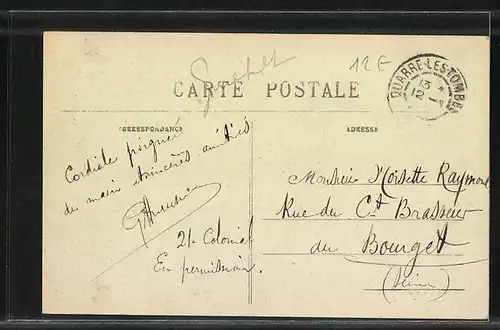 12 E
CARTE POSTALE
QUARRÉ-LES-TOMBES
13
12
CORRESPONDANCE
ADRESSE
Cordiale poignée
de main sincères amitiés
21e Colonial
En permission.
Monsieur Morsette Raymond
Rue du Ct Brasseur
du Bourget
(Seine)